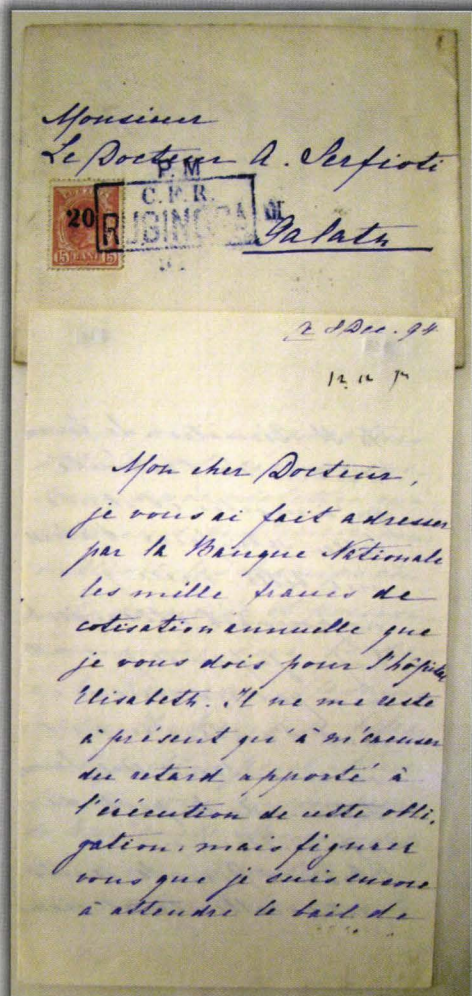 Monsieur
Le Docteur A. Serfioti
Galatz
P.M
C.F.R.
20
15 BANI 15
8 Dec. 94
Mon cher Docteur,
je vous ai fait adresser
par la Banque Nationale
les mille francs de
cotisation annuelle que
je vous dois pour l'hôpital
Elisabeth. Il ne me reste
à présent qu'à m'excuser
du retard apporté à
l'exécution de cette obli-
gation, mais figurez
vous que je suis encore
à attendre le bail de